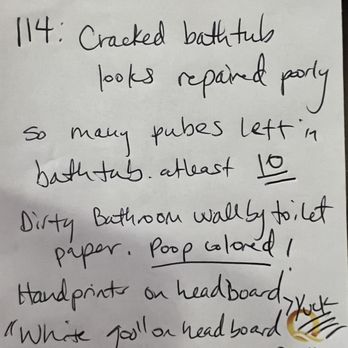 114: Cracked bathtub
looks repaired poorly
So many pubes left in
bathtub. atleast 10
Dirty Bathroom wall by toilet
paper. Poop colored!
Handprints on headboard > Yuck
"White goo" on headboard